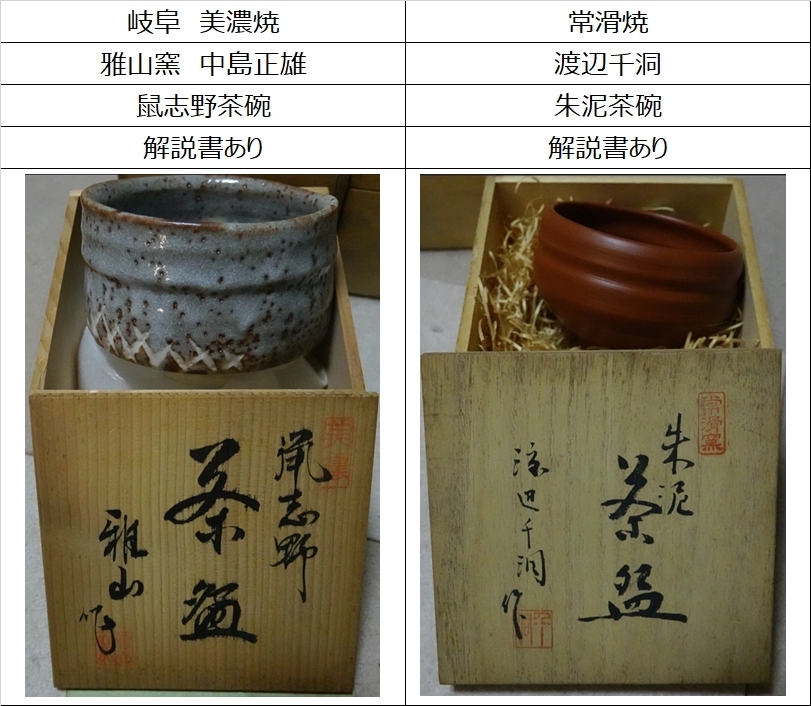 岐阜　美濃焼
雅山窯　中島正雄
鼠志野茶碗
解説書あり
鼠志野
茶盌
雅山作
常滑焼
渡辺千洞
朱泥茶碗
解説書あり
常滑窯
朱泥
茶盌
渡辺千洞作